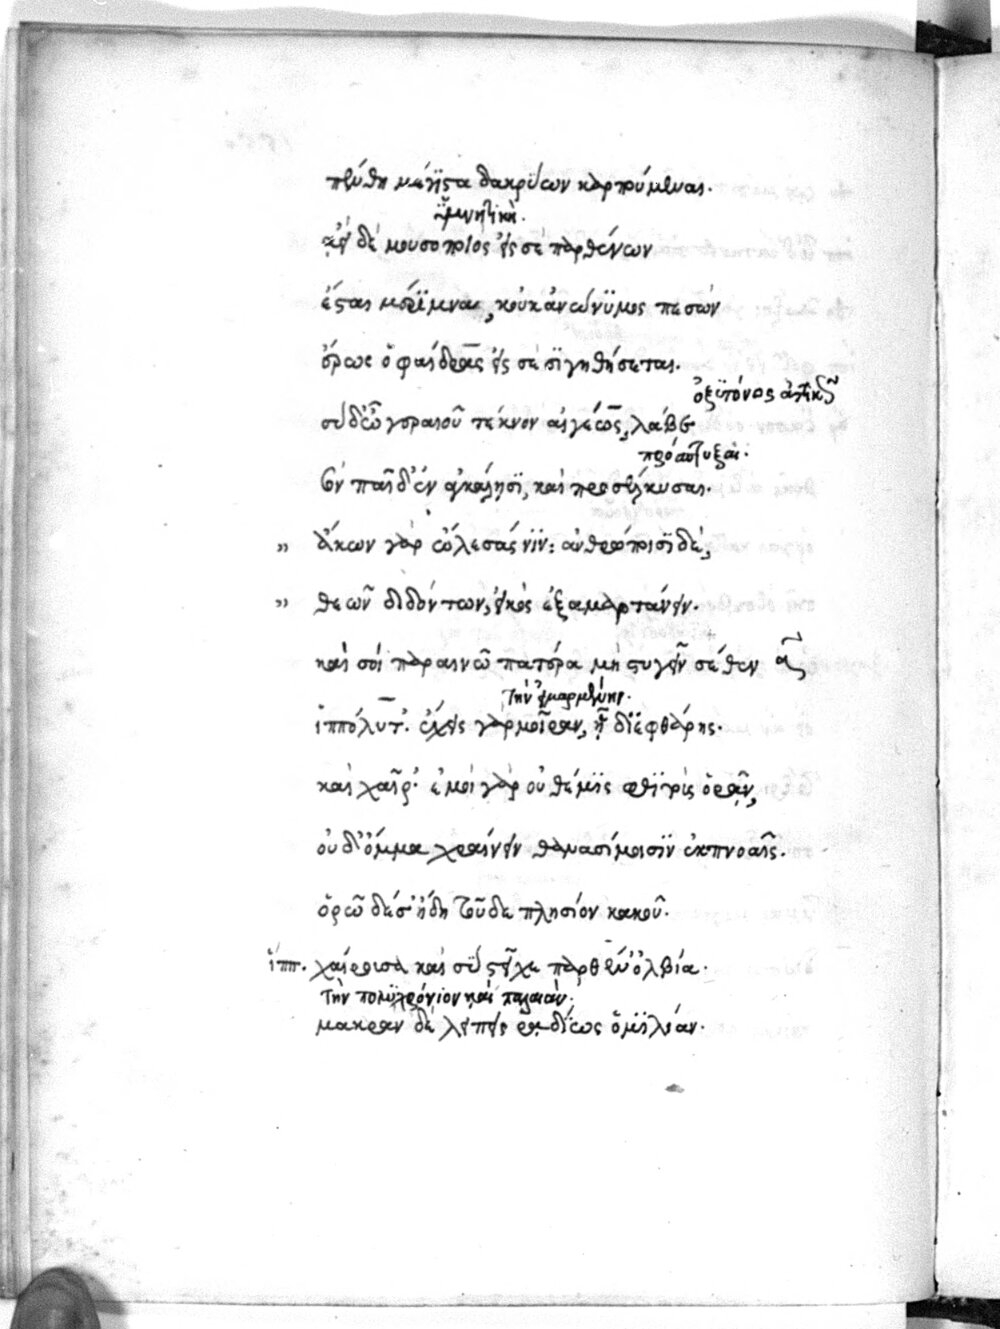 πένθη μέγιστα δακρύων καρπούμεναι.
ὑμνητικὴ.
ἀεὶ δὲ μουσοποιὸς εἰς σὲ παρθένων
ἔσται μέριμνα, κοὐκ ἀνώνυμος πεσὼν
ἔρως ὁ φαίδρας εἰς σὲ σιγηθήσεται.
ὀξυτόνως ἀττικῶς
σὺ δ' ὦ γεραιοῦ τέκνον αἰγέως, λάβε
πρόσπτυξαι.
σὸν παῖδ' ἐν ἀγκάλησι, καὶ προσέλκυσαι.
" ἄκων γὰρ ὤλεσάς νιν: ἀνθρώποισι δὲ,
" θεῶν διδόντων, εἰκὸς ἐξαμαρτάνειν.
καὶ σοὶ παραινῶ πατέρα μὴ στυγεῖν σέθεν
τὴν εἱμαρμένην.
ἱππόλυτ'. ἔχεις γὰρ μοῖραν, ᾗ διεφθάρης.
καὶ χαῖρ' ἐμοὶ γὰρ οὐ θέμις φθιτοὺς ὁρᾶν,
οὐδ' ὄμμα χραίνειν θανασίμοισιν ἐκπνοαῖς.
ὁρῶ δέ σ' ἤδη τοῦδε πλησίον κακοῦ.
ἱππ. χαίρουσα καὶ σὺ στεῖχε παρθέν' ὀλβία.
τὴν πολυχρόνιον καὶ παλαιὰν.
μακρὰν δὲ λείπεις ῥᾳδίως ὁμιλίαν.